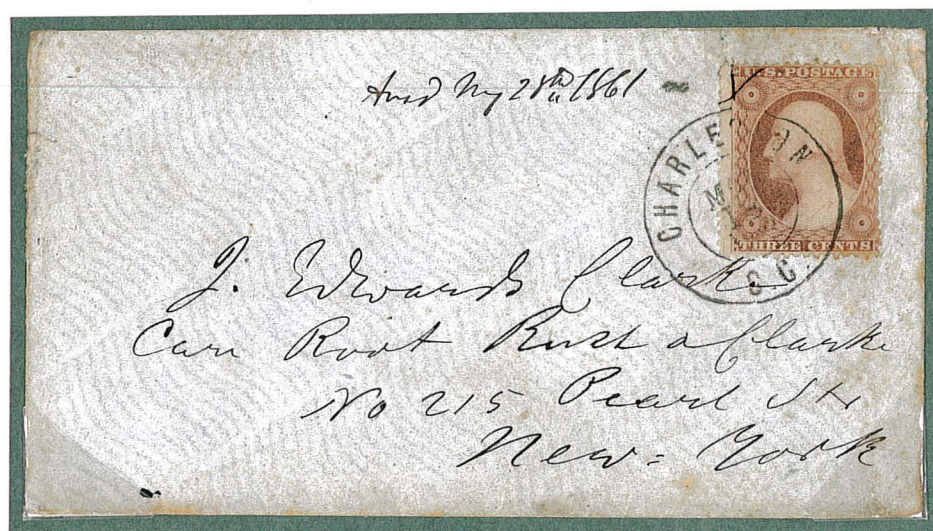 28th 1861
U.S. POSTAGE
THREE CENTS
CHARLESTON
S.C.
J. Edwards Clarke
Care Root Rust & Clarke
No 215 Pearl Str
New-York